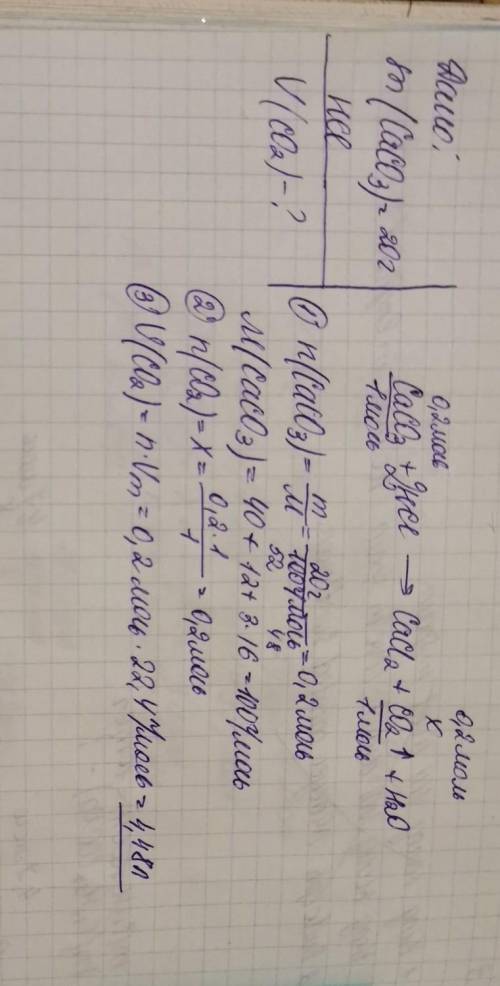 Дано:
m(CaCO₃)=20г
HCl
V(CO₂)-?
0,2 моль
0,2 моль
x
CaCO₃ + 2HCl → CaCl₂ + CO₂↑ + H₂O
1 моль
1 моль
① n(CaCO₃) = m/M = 20г/100г/моль = 0,2 моль
52 48
M(CaCO₃) = 40+12+3·16 = 100г/моль
② n(CO₂) = x = 0,2·1/1 = 0,2 моль
③ V(CO₂) = n·Vm = 0,2 моль · 22,4 л/моль = 4,48л